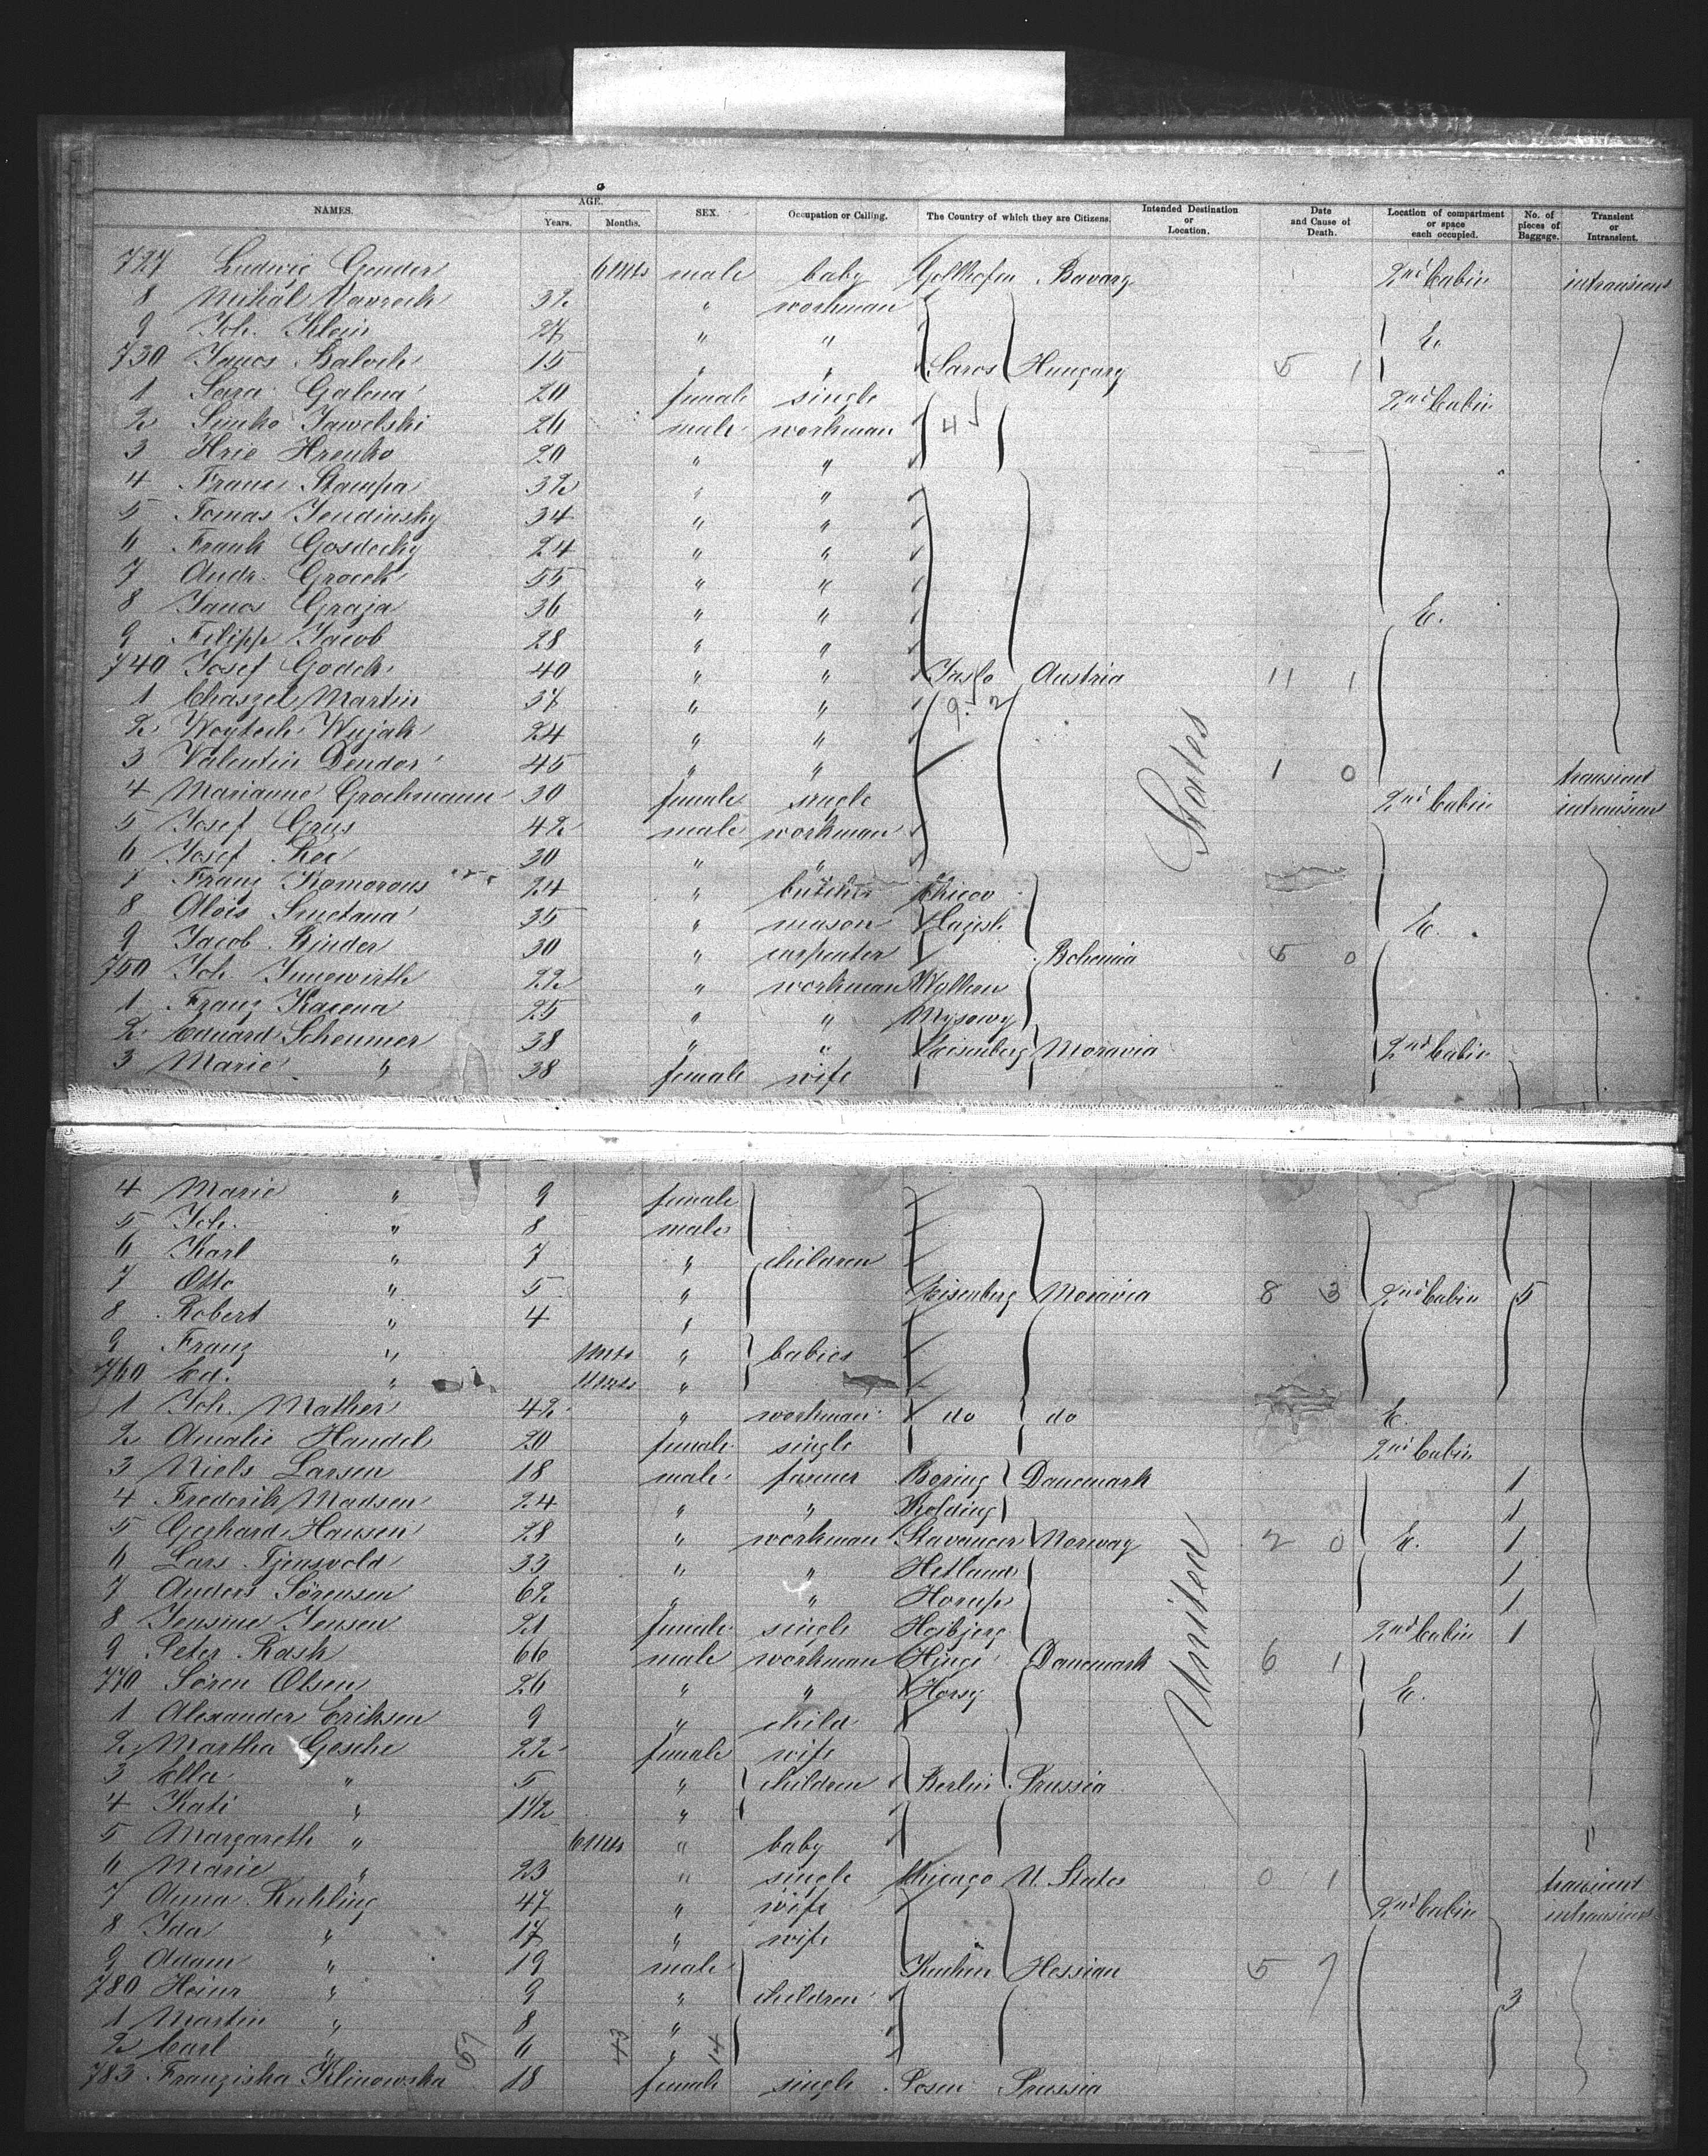 NAMES. AGE. Years. Months. SEX. Occupation or Calling. The Country of which they are Citizens. Intended Destination or Location. Date and Cause of Death. Location of compartment or space each occupied. No. of pieces of Baggage. Transient or Intransient.
727 Ludwig Gender 6 mts male baby Bavary 2nd Cabin intransient
8 Mihál Vavrech 32 " workman
9 Joh. Klein 27 " " E.
730 Janos Baloch 15 " " Saros Hungary 5 1
1 Sara Galena 20 female single 2nd Cabin
2 Simko Jawelski 26 male workman 4
3 Hrie Hrenko 20 " "
4 Franc Stampa 32 " "
5 Tomas Jendinsky 34 " "
6 Frank Gosdecky 24 " "
7 Andr. 55 " "
8 Janos Graja 36 " " E.
9 Filipp Jacob 28 " "
740 Josef Godek 40 " " Jaslo Austria 11 1
1 Martin 37 " " 9 2
2 Woytech Wujak 24 " "
3 Valentin Dendor 45 " " 1 0 transient
4 Marianne Grochmann 30 female single 2nd Cabin intransient
5 Josef Grus 42 male workman
6 Josef 30 " "
7 Franz Komorous 24 " butcher
8 Alois Smetana 35 " mason E.
9 Jacob Binder 30 " carpenter Bohemia 5 0
750 Joh. 22 " workman Wallern
1 Franz Kacena 25 " " Mysowy
2 Eduard Scheumer 38 " " Eisenberg Moravia 2nd Cabin
3 Marie " 38 female wife
States
4 Marie " 9 female
5 Joh. " 8 male
6 Karl " 7 " children
7 Otto " 5 " Eisenberg Moravia 8 3 2nd Cabin 5
8 Robert " 4 "
9 Franz " mts " babies
760 Ed. " mts "
1 Joh. Mather 42 " workman do do E.
2 Amalie Handel 20 female single 2nd Cabin
3 Niels Larsen 18 male farmer Danemark 1
4 Frederik Madsen 24 " " Kolding 1
5 Gerhard Hansen 28 " workman Stavanger Norway 2 0 E. 1
6 Lars Tjensvold 33 " " Hetland 1
7 Anders Sørensen 62 " " Horup 1
8 Jensine Jensen 21 female single Hojbjerg 2nd Cabin 1
9 Peter Rask 66 male workman Hinge Danemark 6 1
770 Søren Olsen 26 " " E.
1 Alexander Eriksen 9 " child
2 Martha Gesche 22 female wife
3 Ella " 5 " children Berlin Prussia
4 Kati " 1 1/2 "
5 Margareth " 6 mts " baby "
6 Marie " 23 " single Chicago U. States 0 1 transient
7 Anna Ruhling 47 " wife 2nd Cabin intransient
8 Ida " 17 " wife
9 Adam " 19 male Hessian 5 7
780 Heinr " 9 " children 3
1 Martin " 8 "
2 Carl " 6 "
783 Franziska Klinowska 18 female single Posen Prussia
United
57 43 14